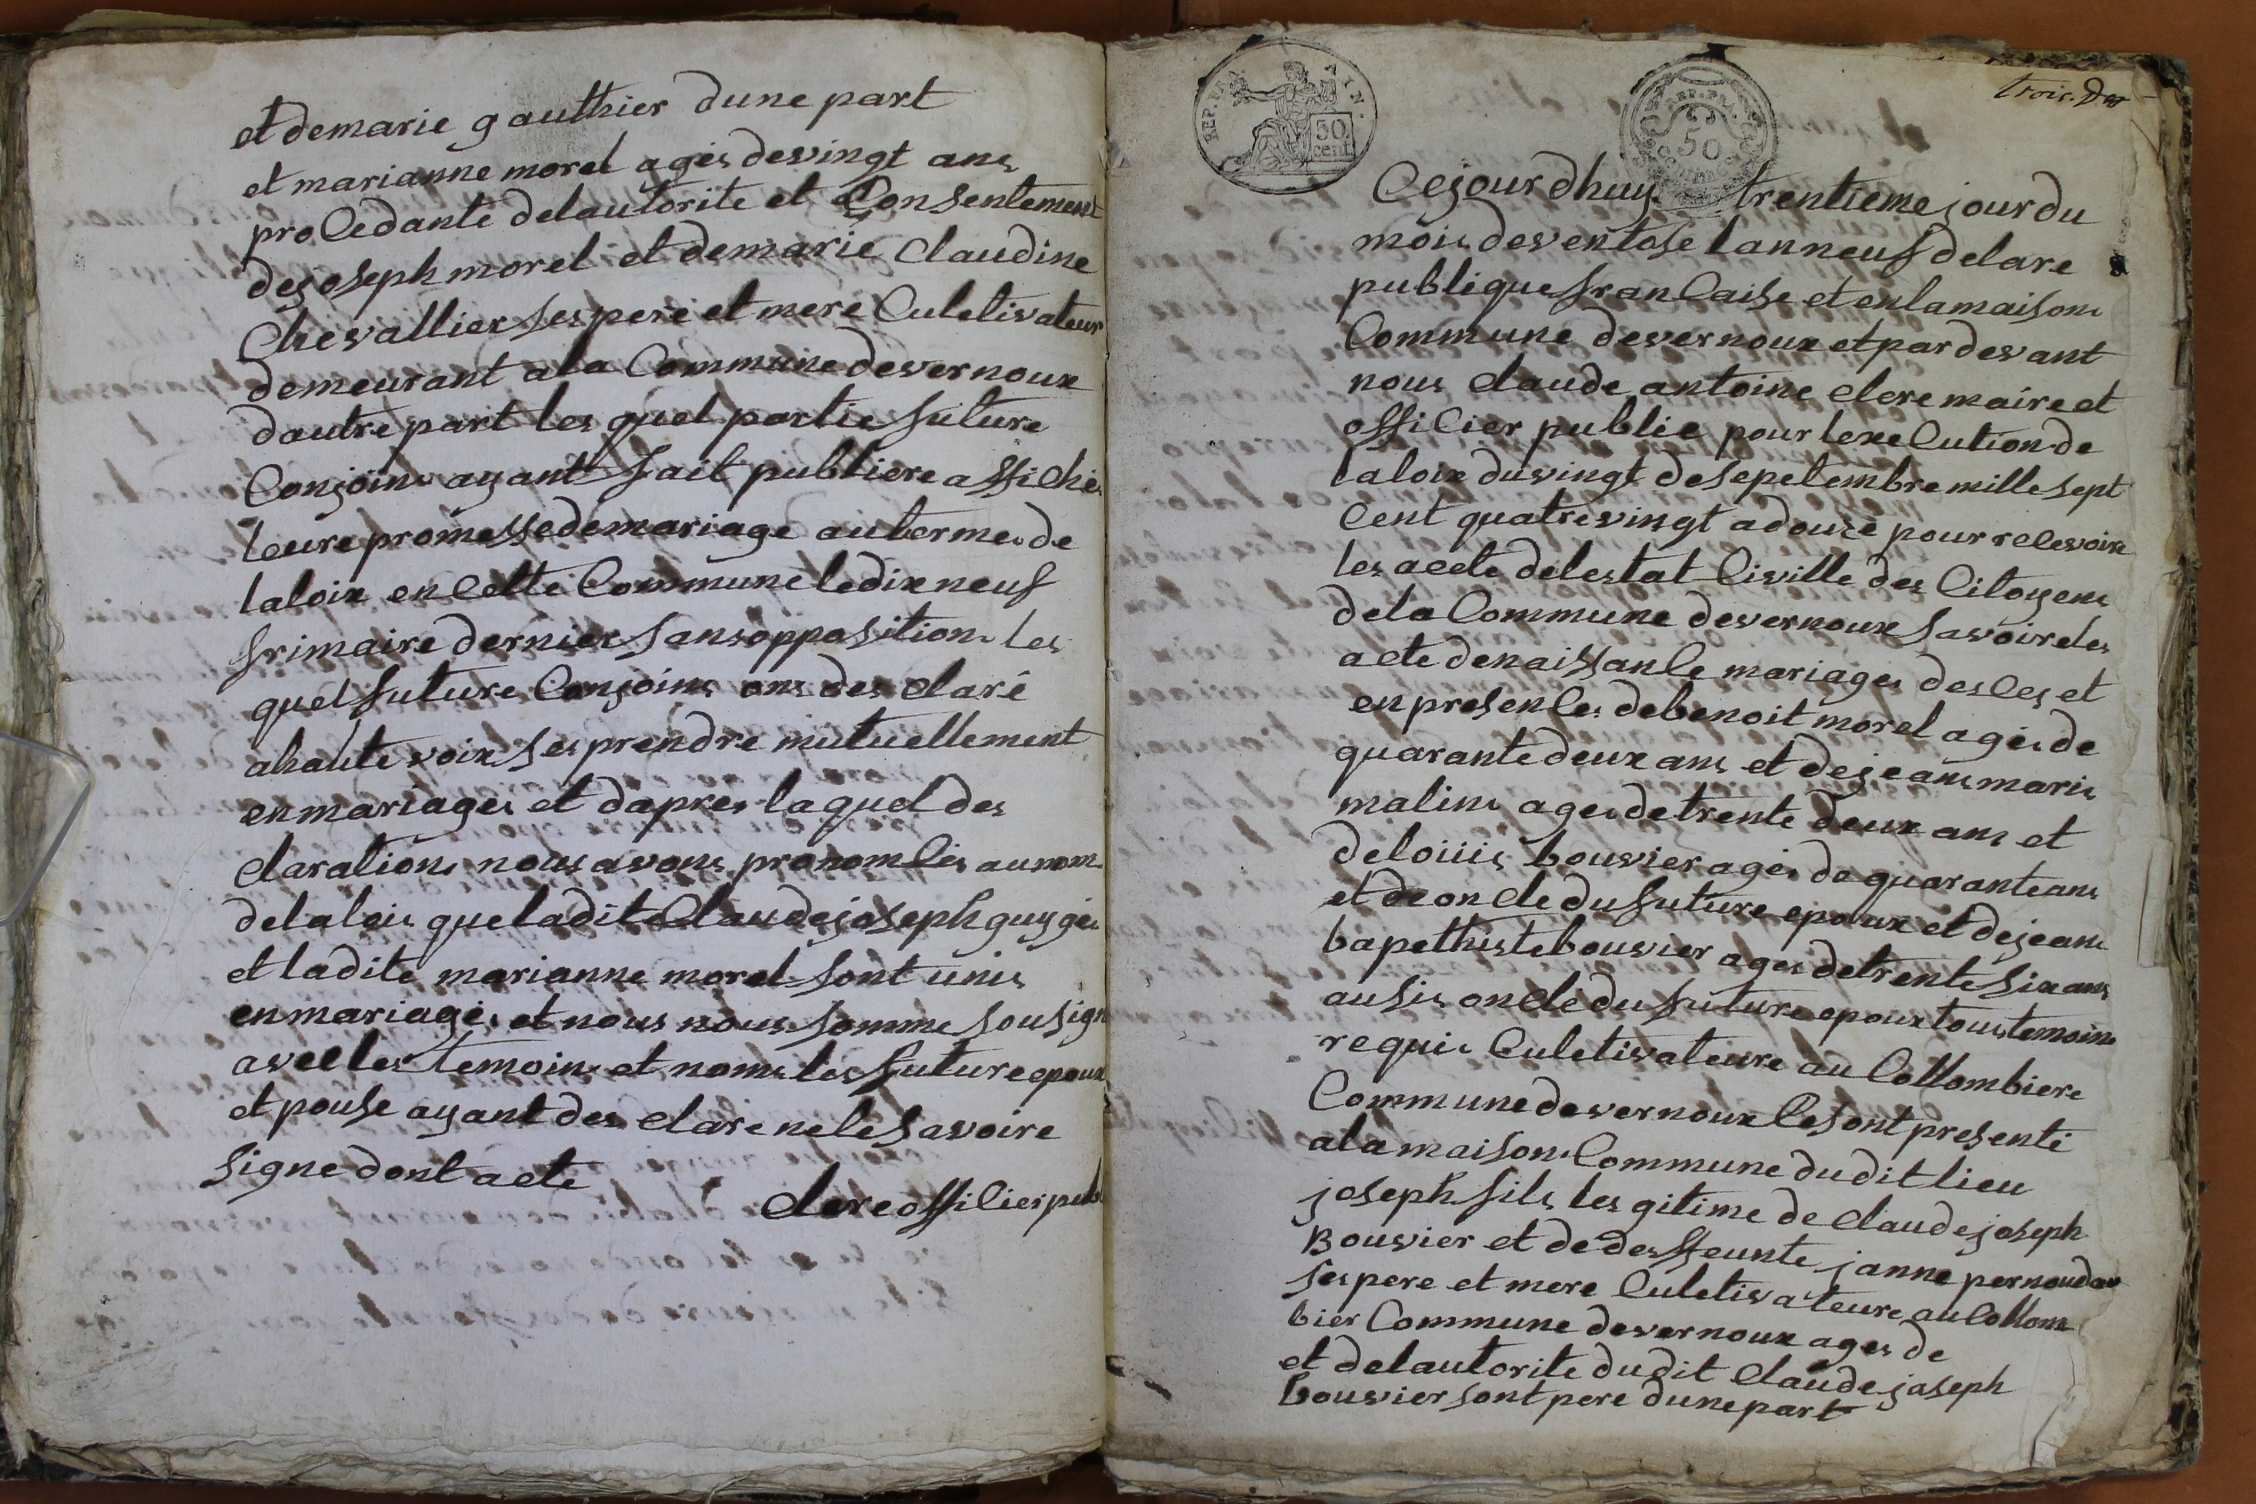 et demarie gauthier dune part
et marianne morel ages devingt ans
procedante delautorite et Consentement
dejoseph morel et demarie Claudine
Chevallier ses pere et mere Culetivateur
demeurant ala Commune devernoux
dautre part les quel partie future
Conjoins ayant fait publiere affiche
leure promesse demariage autermes de
laloix en Cette Commune ledix neuf
frimaire dernier sans opposition les
quel future Conjoins ons des claré
ahaute voix ses prendre mutuellement
enmariages et dapres la quel des
claration nous avons pronomcés aunom
delalois que ladit Claudejoseph guyges
et ladite marianne morel sont unis
enmariages et nous nous somme sousign
avecles temoins et noms les future epoux
et pouse ayant des clare nele savoire
signe dont acte
clere officier pub
REP. FRA
50 cent
REP. FRA.
50
trois.
Cejourdhuy trentieme jour du
mois deventose lanneuf delare
publique francaise et enlamaison
Commune devernoux et par devant
nous claude antoine clere maire et
officier public pour lexecution de
laloix duvingt desepetembre mille sept
Cent quatrevingt adouze pour recevoire
les acete delestat Civille des Citoyens
dela Commune devernoux savoire les
acte denaissance mariages desces et
en presences debenoit morel ages de
quarante deux ans et dejeans marie
malins ages detrente deux ans et
deloiiis bouvier ages de quarante ans
et de oncle du future epoux et dejean
bapethiste bouvier ages detrente six ans
ausis oncle du future epoux tous temoins
requis Culetivateure au Collombiere
Commune devernoux Cesont presente
ala maison Commune dudit lieu
joseph fils les gitime de claude joseph
Bouvier et de des feunte janne pernoud
ses pere et mere Culetivateure au Collom
bier Commune devernoux ages de
et delautorite dudit Claude joseph
bouvier sont pere dune part